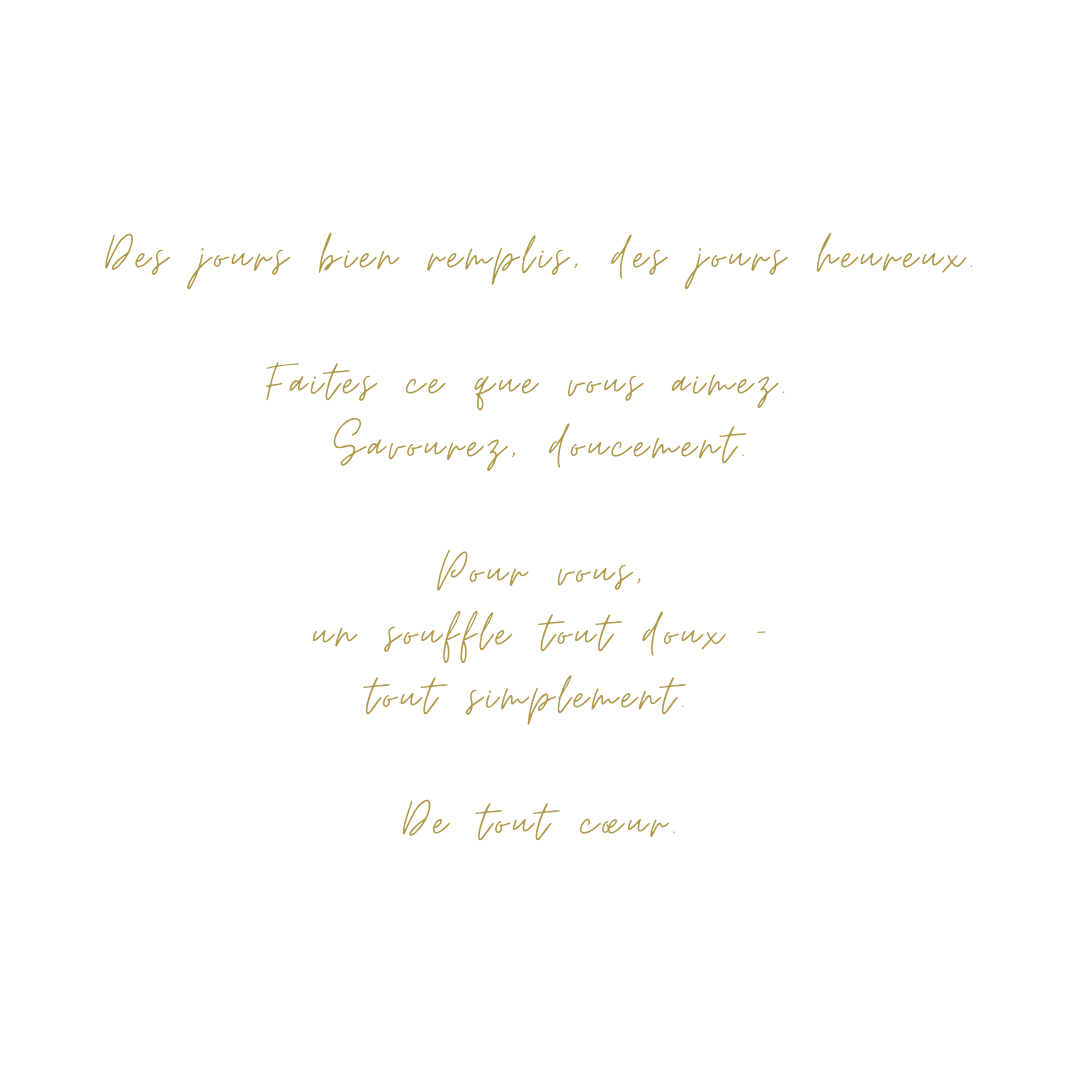 Des jours bien remplis, des jours heureux.
Faites ce que vous aimez.
Savourez, doucement.
Pour vous,
un souffle tout doux -
tout simplement.
De tout cœur.